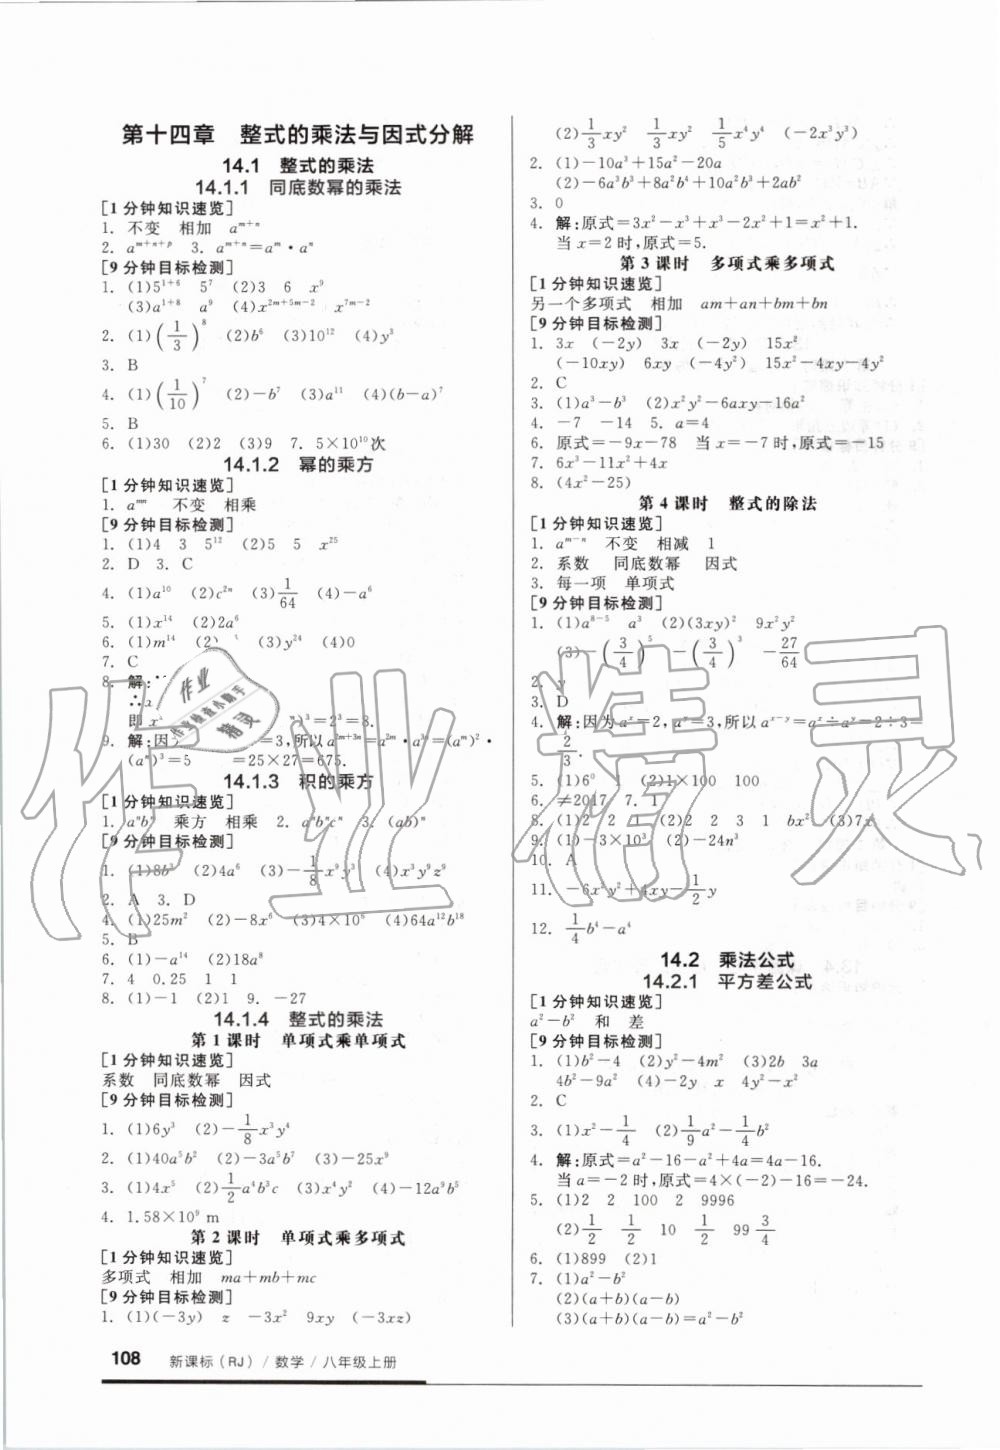 第十四章 整式的乘法与因式分解
14.1 整式的乘法
14.1.1 同底数幂的乘法
[1分钟知识速览]
1. 不变 相加 a^{m+n}
2. a^{m+n+p} 3. a^{m+n}=a^m·a^n
[9分钟目标检测]
1. (1)5^{1+6} 5^7 (2)3 6 x^9
(3)a^{1+8} a^9 (4)x^{2m+5m-2} x^{7m-2}
2. (1)(1/3)^8 (2)b^6 (3)10^{12} (4)y^3
3. B
4. (1)(1/10)^7 (2)-b^7 (3)a^{11} (4)(b-a)^7
5. B
6. (1)30 (2)2 (3)9 7. 5×10^{10}次
14.1.2 幂的乘方
[1分钟知识速览]
1. a^{mn} 不变 相乘
[9分钟目标检测]
1. (1)4 3 5^{12} (2)5 5 x^{25}
2. D 3. C
4. (1)a^{10} (2)c^{2n} (3)1/64 (4)-a^6
5. (1)x^{14} (2)2a^6
6. (1)m^{14} (2) (3)y^{24} (4)0
7. C
8. 解:
∴
即 )^3=2^3=8.
9. 解:因 =3,所以a^{2m+3n}=a^{2m}·a^{3n}=(a^m)^2·
(a^n)^3=5 =25×27=675.
14.1.3 积的乘方
[1分钟知识速览]
1. a^nb^n 乘方 相乘 2. a^nb^nc^n 3. (ab)^n
[9分钟目标检测]
1. (1)8b^3 (2)4a^6 (3)-1/8x^9y^3 (4)x^3y^9z^9
2. A 3. D
4. (1)25m^2 (2)-8x^6 (3)4×10^6 (4)64a^{12}b^{18}
5. B
6. (1)-a^{14} (2)18a^8
7. 4 0.25 1 1
8. (1)-1 (2)1 9. -27
14.1.4 整式的乘法
第1课时 单项式乘单项式
[1分钟知识速览]
系数 同底数幂 因式
[9分钟目标检测]
1. (1)6y^3 (2)-1/8x^3y^4
2. (1)40a^5b^2 (2)-3a^5b^7 (3)-25x^9
3. (1)4x^5 (2)1/2a^4b^3c (3)x^4y^2 (4)-12a^9b^5
4. 1.58×10^9 m
第2课时 单项式乘多项式
[1分钟知识速览]
多项式 相加 ma+mb+mc
[9分钟目标检测]
1. (1)(-3y) z -3x^2 9xy (-3xz)
(2)1/3xy^2 1/3xy 1/5x^4y^4 (-2x^3y^3)
2. (1)-10a^3+15a^2-20a
(2)-6a^3b^3+8a^2b^4+10a^2b^3+2ab^2
3. 0
4. 解:原式=3x^2-x^3+x^3-2x^2+1=x^2+1.
当x=2时,原式=5.
第3课时 多项式乘多项式
[1分钟知识速览]
另一个多项式 相加 am+an+bm+bn
[9分钟目标检测]
1. 3x (-2y) 3x (-2y) 15x^2
(-10xy) 6xy (-4y^2) 15x^2-4xy-4y^2
2. C
3. (1)a^3-b^3 (2)x^2y^2-6axy-16a^2
4. -7 -14 5. a=4
6. 原式=-9x-78 当x=-7时,原式=-15
7. 6x^3-11x^2+4x
8. (4x^2-25)
第4课时 整式的除法
[1分钟知识速览]
1. a^{m-n} 不变 相减 1
2. 系数 同底数幂 因式
3. 每一项 单项式
[9分钟目标检测]
1. (1)a^{8-5} a^3 (2)(3xy)^2 9x^2y^2
(3)-(3/4)^5 -(3/4)^3 -27/64
2. y
3. D
4. 解:因为a^x=2,a^y=3,所以a^{x-y}=a^x÷a^y=2÷3=
2/3.
5. (1)6^0 1 (2)1×100 100
6. ≠2017 7. 1
8. (1)2 2 1 (2)2 2 3 1 bx^2 (3)7x
9. (1)-3×10^3 (2)-24n^3
10. A
11. -6x^2y^2+4xy-1/2y
12. 1/4b^4-a^4
14.2 乘法公式
14.2.1 平方差公式
[1分钟知识速览]
a^2-b^2 和 差
[9分钟目标检测]
1. (1)b^2-4 (2)y^2-4m^2 (3)2b 3a
4b^2-9a^2 (4)-2y x 4y^2-x^2
2. C
3. (1)x^2-1/4 (2)1/9a^2-1/4b^2
4. 解:原式=a^2-16-a^2+4a=4a-16.
当a=-2时,原式=4×(-2)-16=-24.
5. (1)2 2 100 2 9996
(2)1/2 1/2 10 1/2 99 3/4
6. (1)899 (2)1
7. (1)a^2-b^2
(2)(a+b)(a-b)
(3)(a+b)(a-b)=a^2-b^2
108 新课标(RJ)/数学/八年级上册
作业精灵